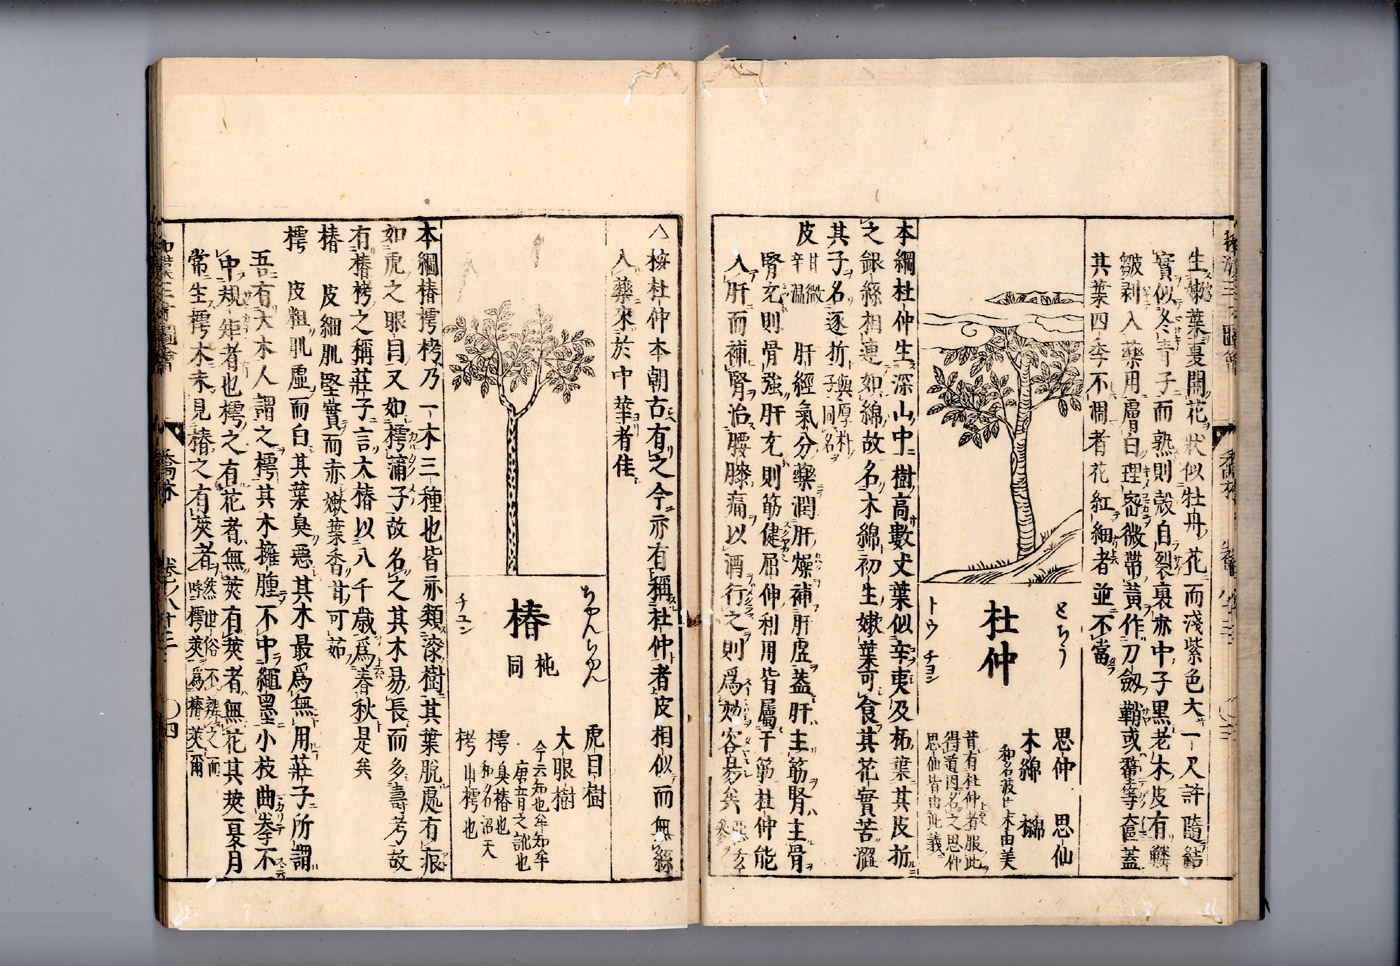 生嫩葉夏開花狀似牡丹花而淺紫色大一尺許隨結
實似冬青子而熟則殼自裂裏亦中子黑老木皮有鱗
皺剥入藥用膚白理密微帶黃作刀劔鞘或蕃字奩蓋
其葉四季不凋者花紅細者並不當
とちう
杜仲
トウ チヨン
思仲 思仙
木綿 檰
和名波比末由美
昔有杜仲者服此
得道因名之思仲
思仙皆由此義
本綱杜仲生深山中樹高數丈葉似辛夷及柘葉其皮折
之銀絲相連如綿故名木綿初生嫩葉可食其花實苦澀
其子名逐折 與厚朴子同名
皮 甘微辛温 肝經氣分藥潤肝燥補肝虛蓋肝主筋腎主骨
腎充則骨強肝充則筋健屈伸利用皆屬于筋杜仲能
入肝而補腎治腰膝痛以酒行之則爲効容易矣
△按杜仲本朝古有之今亦有稱杜仲者皮相似而無絲
入藥來於中華者佳
ちやんちゆん
椿
杶 同
チユン
虎目樹
大眼樹
今云知也牟知牟
唐音之訛也
樗 臭椿也
和名沼天
栲 山樗也
本綱椿樗栲乃一木三種也皆亦類漆樹其葉脫處有痕
如虎之眼目又如樗蒲子故名之其木易長而多壽考故
有椿栲之稱莊子言大椿以八千歳爲春秋是矣
椿 皮細肌堅實而赤嫩葉香甘可茹
樗 皮粗肌虛而白其葉臭惡其木最爲無用莊子所謂
吾有大木人謂之樗其木擁腫不中繩墨小枝曲拳不
中規矩者也樗之有花者無莢有莢者無花其莢夏月
常生樗木未見椿之有莢者 然世俗不辨之而呼樗莢爲椿莢爾
喬木
卷之八十三
〇四